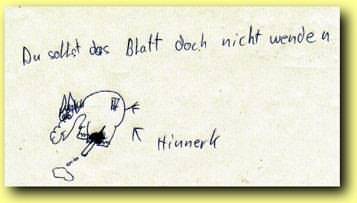 Du sollst das Blatt doch nicht wenden
Hinnerk